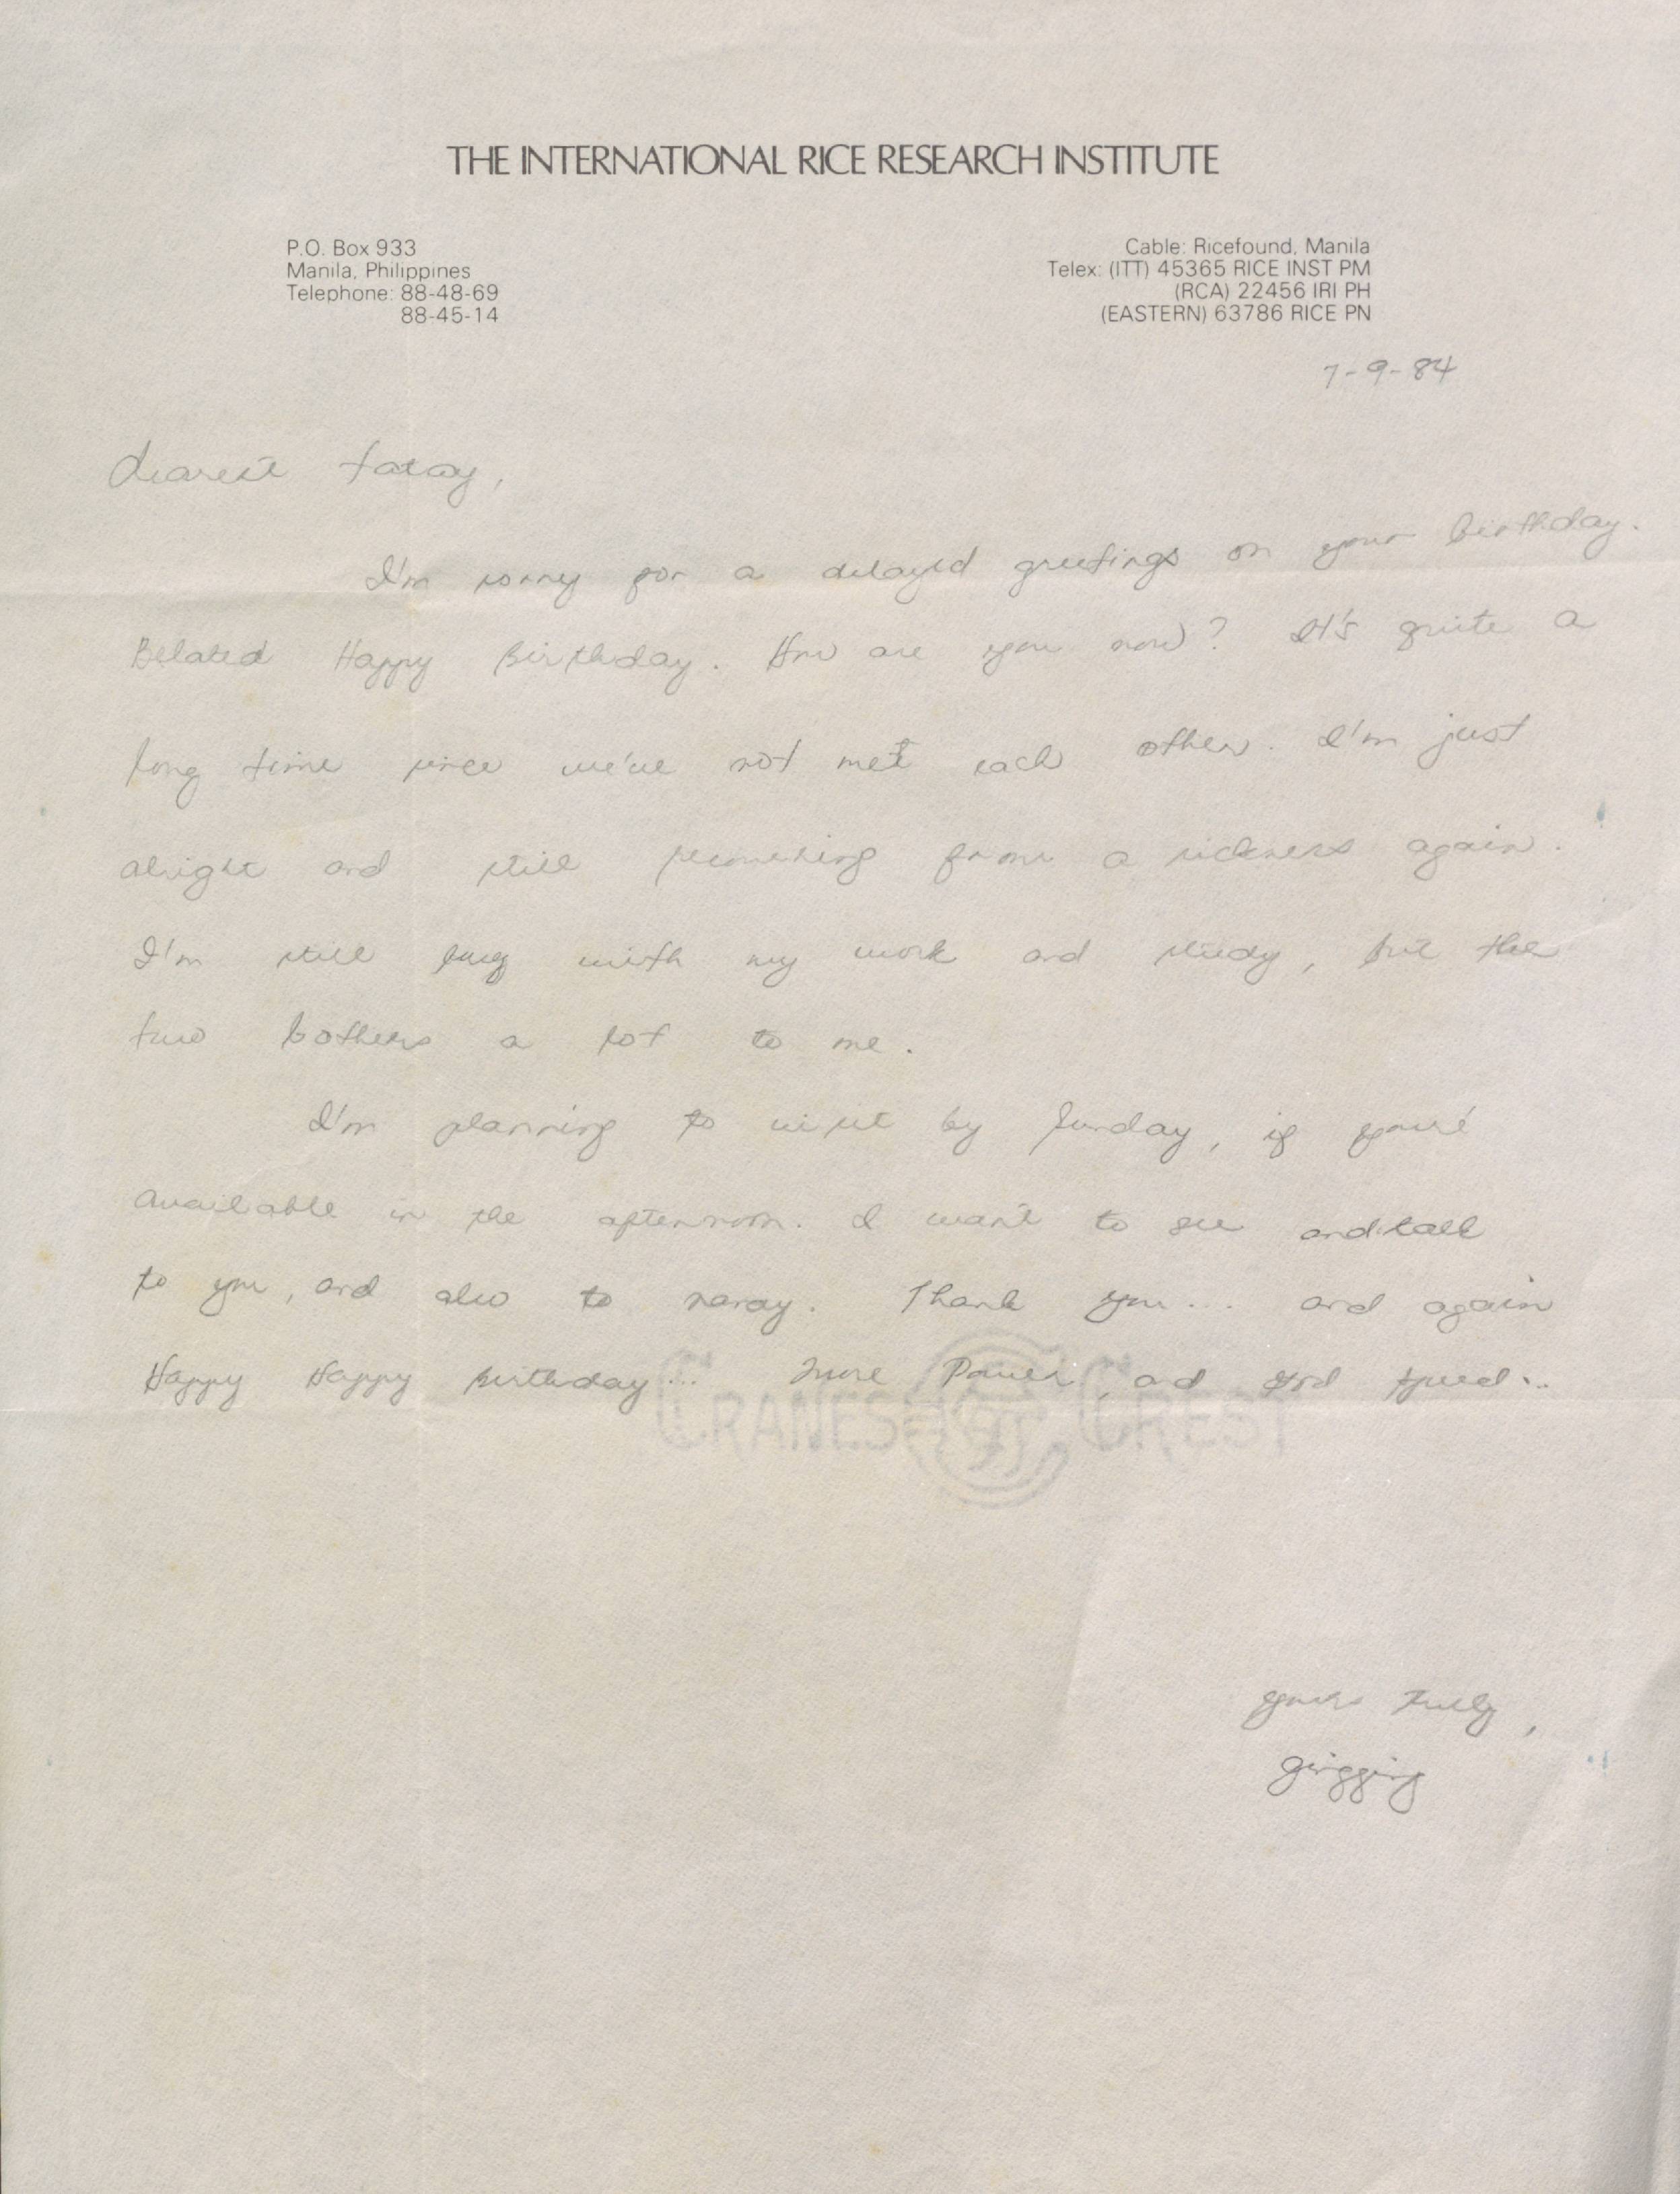 THE INTERNATIONAL RICE RESEARCH INSTITUTE
P.O. Box 933
Manila, Philippines
Telephone: 88-48-69
88-45-14
Cable: Ricefound, Manila
Telex: (ITT) 45365 RICE INST PM
(RCA) 22456 IRI PH
(EASTERN) 63786 RICE PN
7-9-84
Dearest Tatay,
I'm sorry for a delayed greetings on your birthday.
Belated Happy Birthday. How are you now? It's quite a
long time since we've not met each other. I'm just
alright and still recovering from a sickness again.
I'm still busy with my work and study, but the
two bothers a lot to me.
I'm planning to visit by Sunday, if you're
available in the afternoon. I want to see and talk
to you, and also to nanay. Thank you... and again
Happy Happy Birthday... More Power, and God speed...
CRANES CREST
yours truly,
gingging